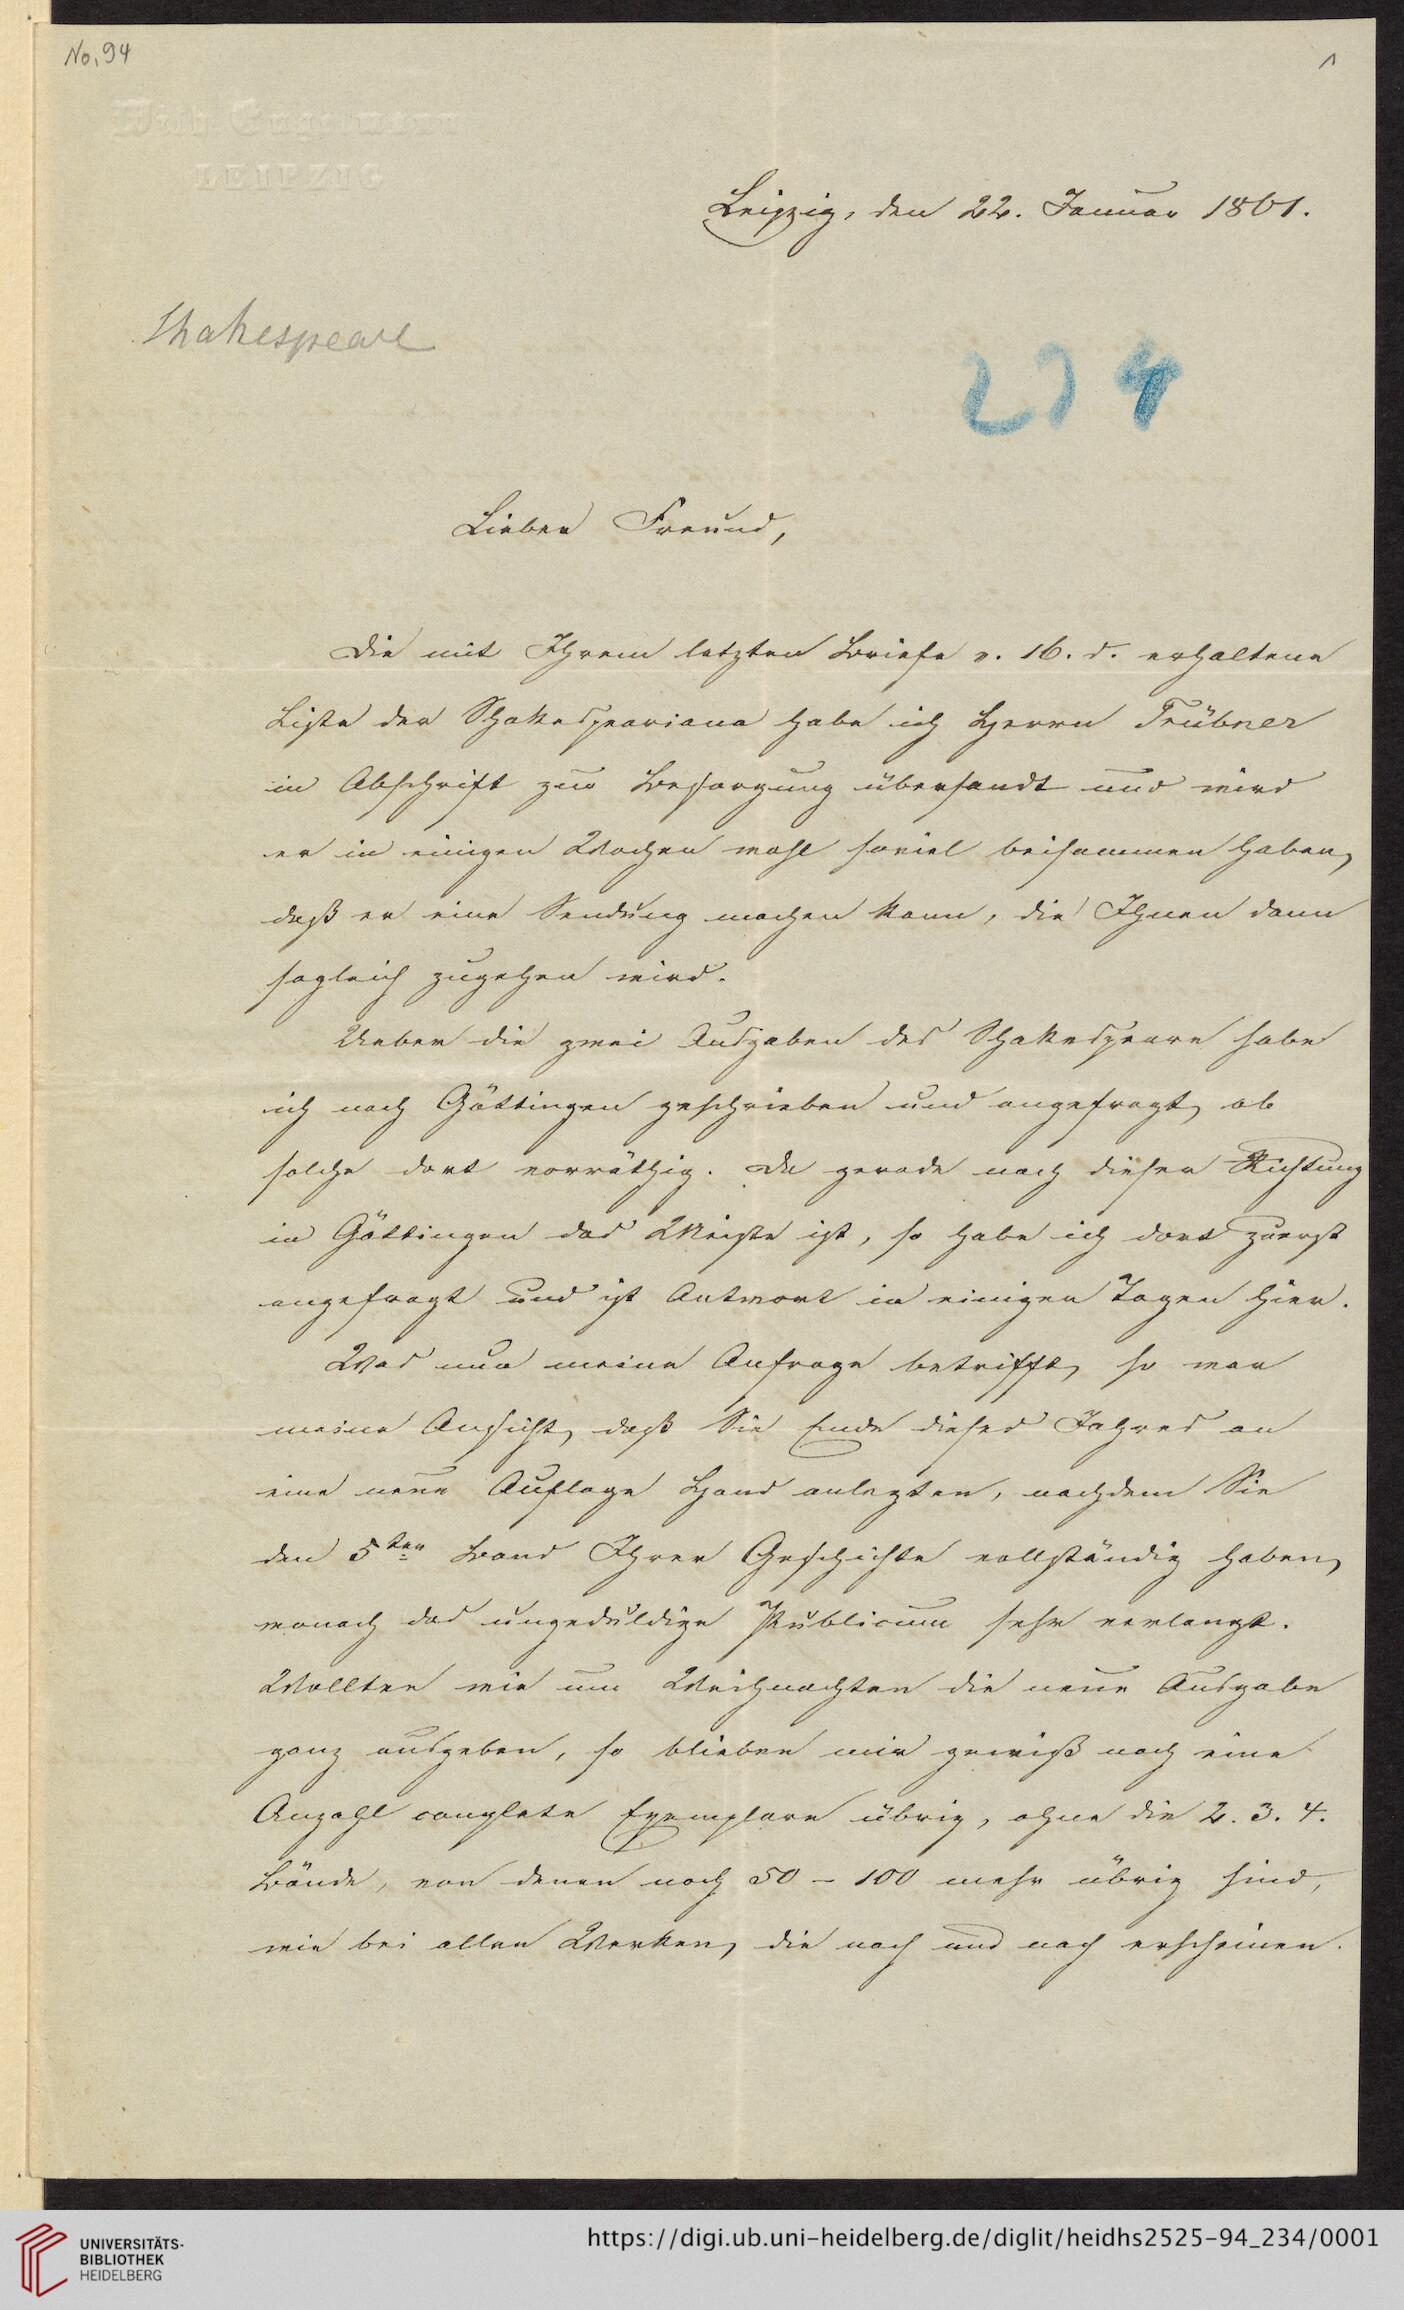 No. 94
1
Wilh. Engelmann
LEIPZIG
Leipzig, den 22. Januar 1861.
Shakespeare
234
Lieber Freund,
Die mit Ihrem letzten Briefe v. 16. d. erhaltene
Liste der Shakespeariana habe ich Herrn Trübner
in Abschrift zur Besorgung übersandt und wird
er in einigen Wochen wohl soviel beisammen haben,
daß er eine Sendung machen kann, die Ihnen dann
sogleich zugehen wird.
Ueber die zwei Ausgaben des Shakespeare habe
ich nach Göttingen geschrieben und angefragt, ob
solche dort vorräthig. Da gerade nach dieser Richtung
in Göttingen das Meiste ist, so habe ich dort zuerst
angefragt und ist Antwort in einigen Tagen hier.
Was nun meine Anfrage betrifft, so war
meine Ansicht, daß Sie Ende dieses Jahres an
eine neue Auflage Hand anlegten, nachdem Sie
den 5ten Band Ihrer Geschichte vollständig haben,
wonach das ungeduldige Publicum sehr verlangt.
Wollten wir um Weihnachten die neue Ausgabe
ganz ausgeben, so blieben mir gewiß noch eine
Anzahl complete Exemplare übrig, ohne die 2. 3. 4.
Bände, von denen noch 50 – 100 mehr übrig sind,
wie bei allen Werken, die nach und nach erscheinen.
UNIVERSITÄTS-
BIBLIOTHEK
HEIDELBERG
https://digi.ub.uni-heidelberg.de/diglit/heidhs2525-94_234/0001